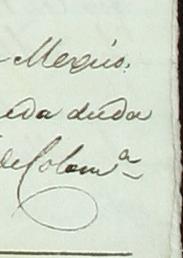 Mexico.
duda
de Colom.ª